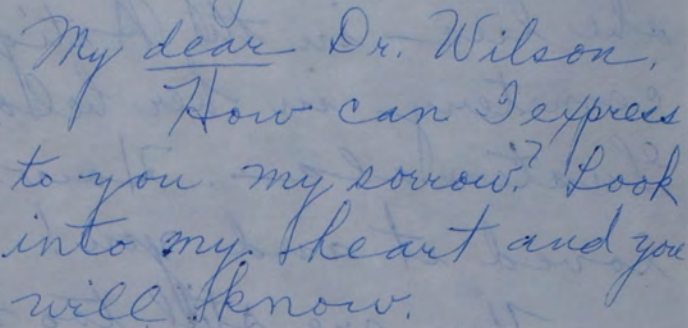 My dear Dr. Wilson,
How can I express
to you my sorrow? Look
into my heart and you
will know.